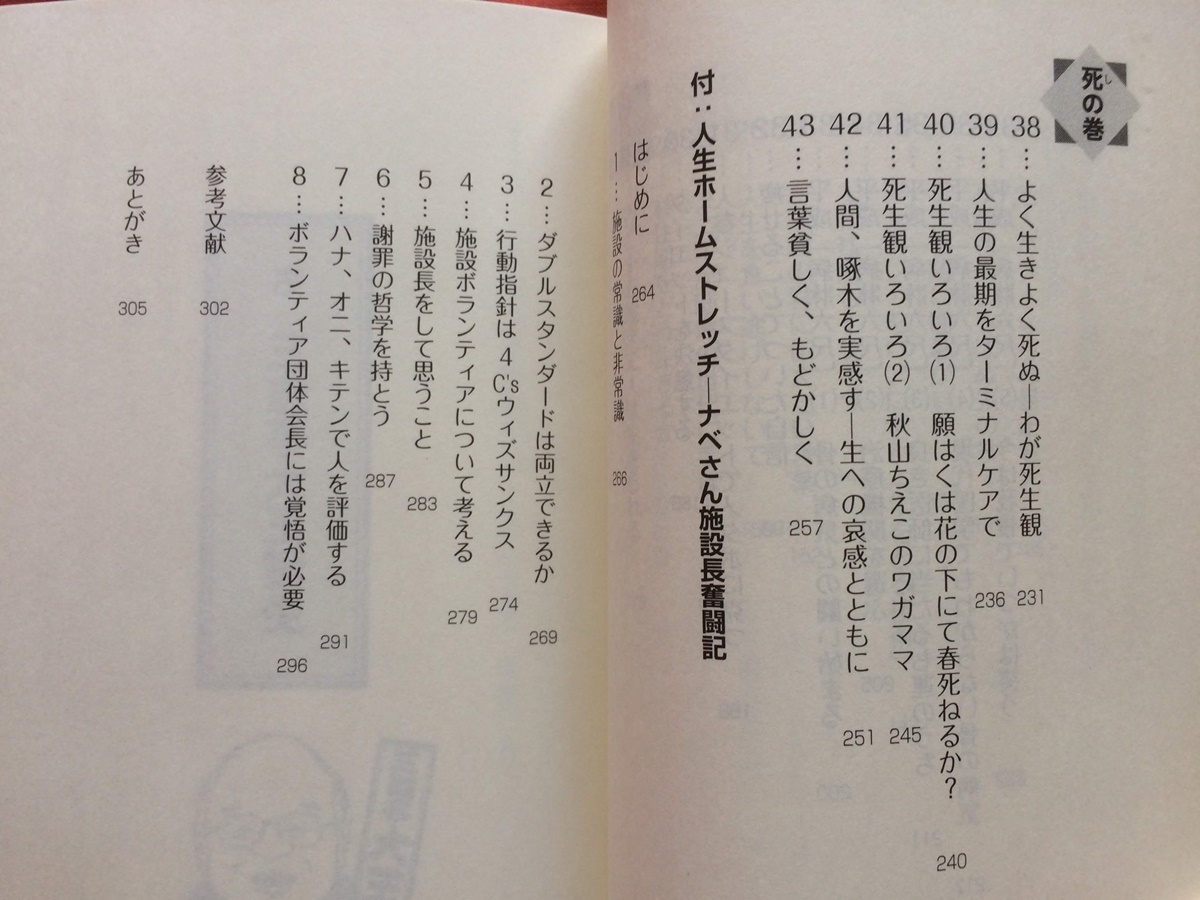 死の巻
し
38…よく生きよく死ぬ―わが死生観 231
39…人生の最期をターミナルケアで 236
40…死生観いろいろ(1) 願はくは花の下にて春死ねるか? 240
41…死生観いろいろ(2) 秋山ちえこのワガママ 245
42…人間、啄木を実感す―生への哀感とともに 251
43…言葉貧しく、もどかしく 257
付:人生ホームストレッチ―ナベさん施設長奮闘記
はじめに 264
1…施設の常識と非常識 266
2…ダブルスタンダードは両立できるか 269
3…行動指針は4C'sウィズサンクス 274
4…施設ボランティアについて考える 279
5…施設長をして思うこと 283
6…謝罪の哲学を持とう 287
7…ハナ、オニ、キテンで人を評価する 291
8…ボランティア団体会長には覚悟が必要 296
参考文献 302
あとがき 305